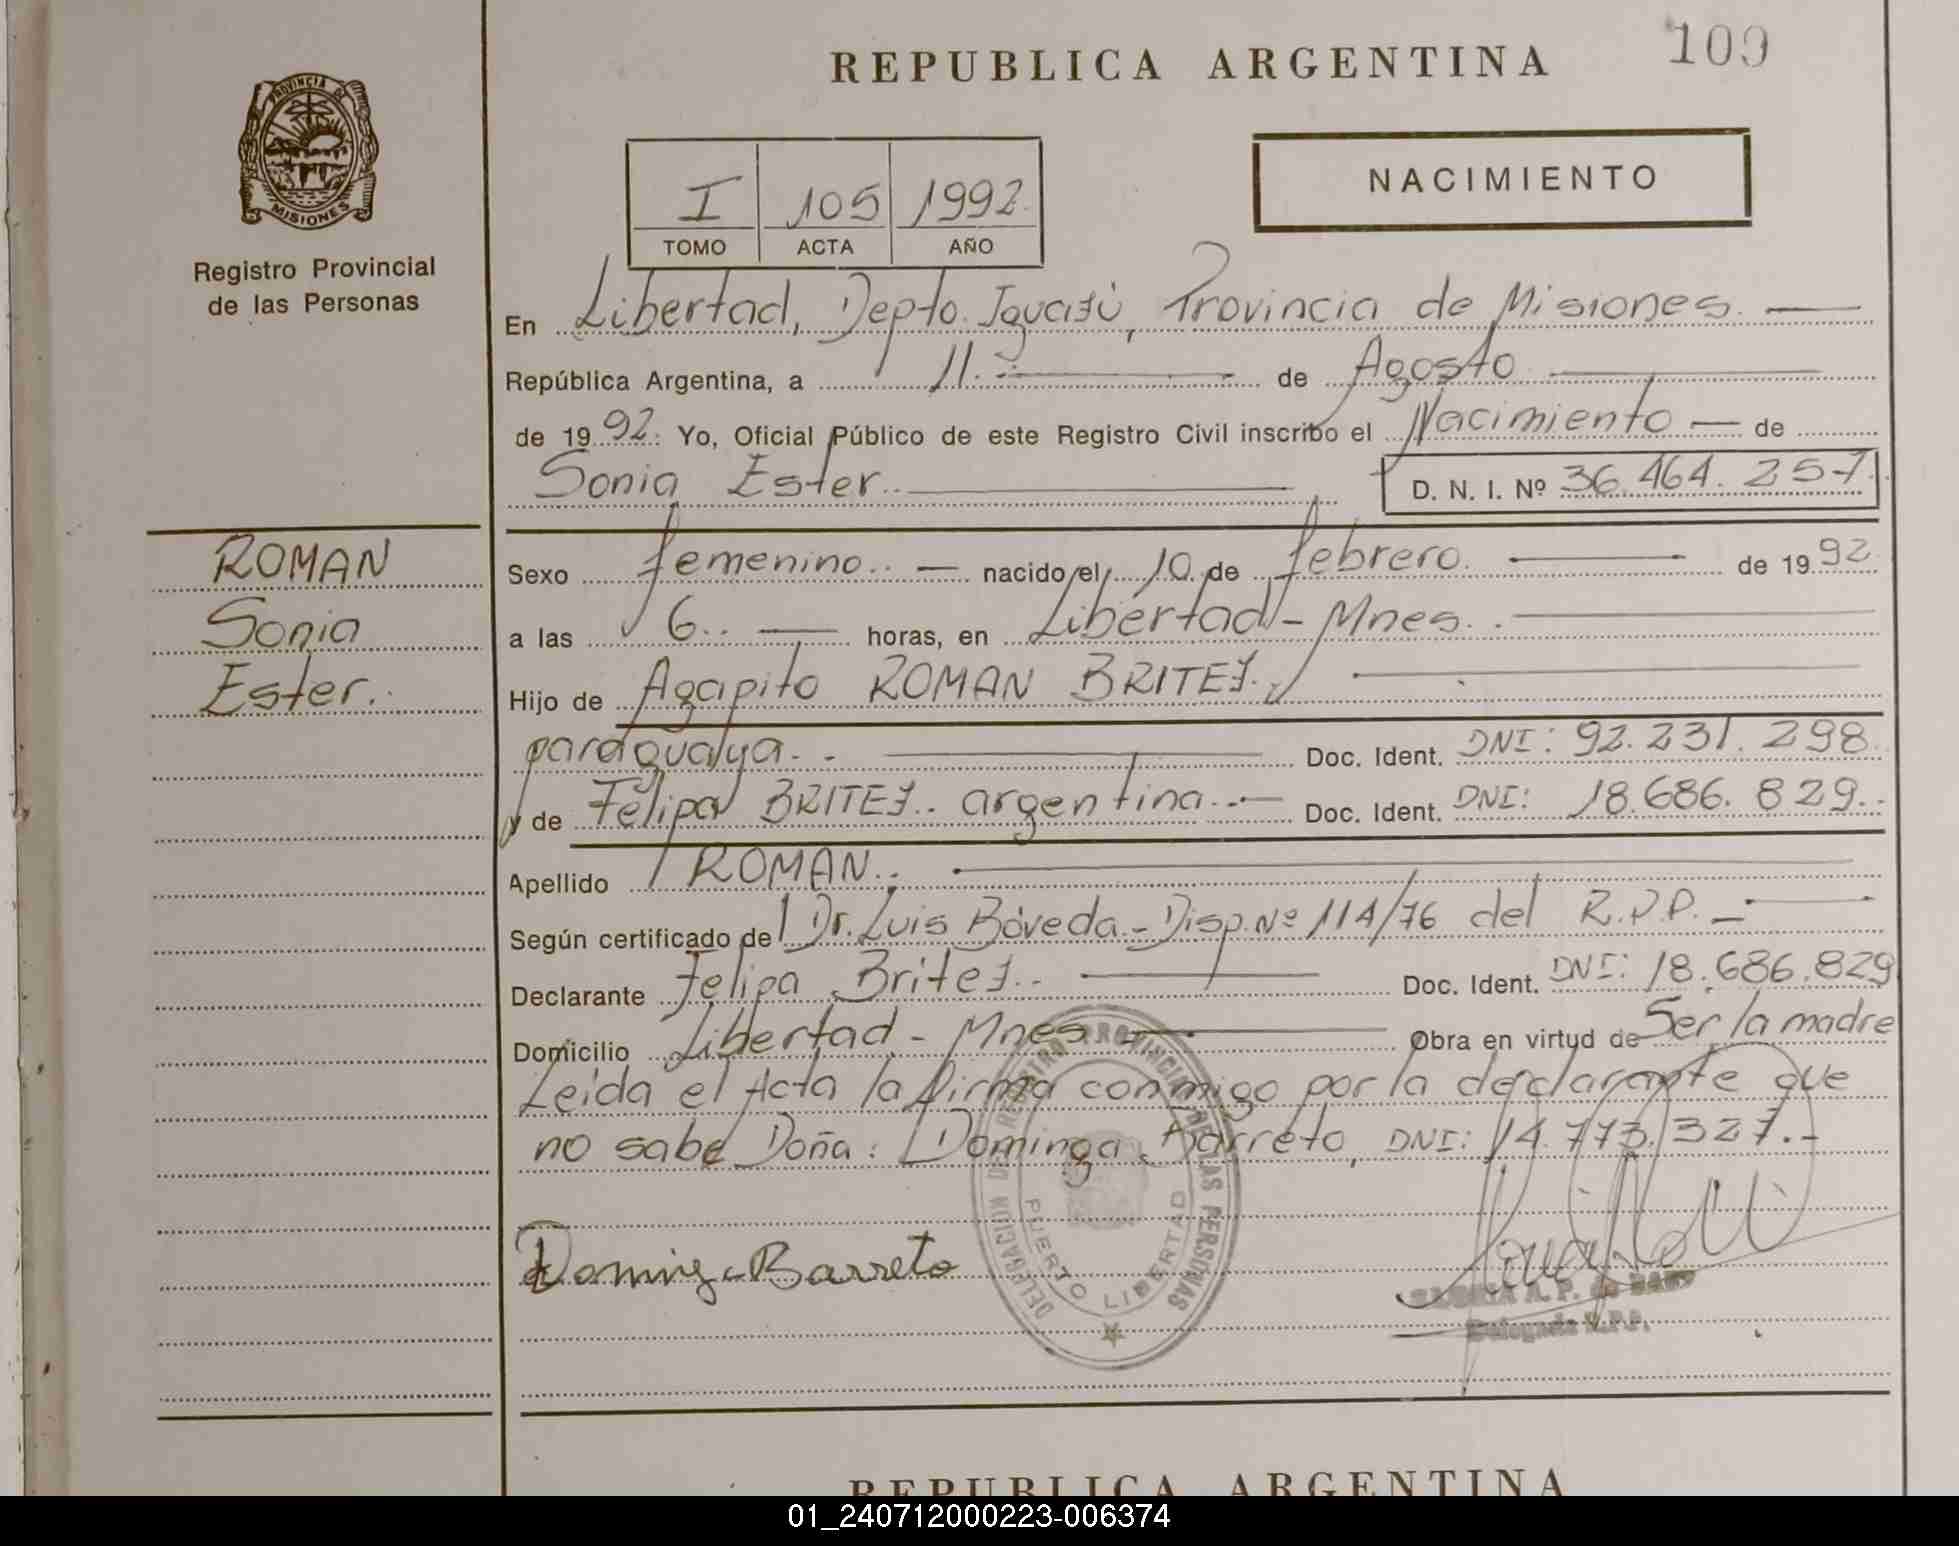 REPUBLICA ARGENTINA
109
PROVINCIA DE
MISIONES
Registro Provincial
de las Personas
I 105 1992
TOMO ACTA AÑO
NACIMIENTO
En Libertad, Depto. Iguazú, Provincia de Misiones.
República Argentina, a 11. de Agosto
de 1992. Yo, Oficial Público de este Registro Civil inscribo el Nacimiento de
Sonia Ester. D. N. I. Nº 36.464.257.
ROMAN
Sonia
Ester.
Sexo femenino. nacido el 10 de febrero. de 1992
a las 6. horas, en Libertad - Mnes.
Hijo de Agapito ROMAN BRITEZ.
paraguaya. Doc. Ident. DNI: 92.231.298.
y de Felipa BRITEZ. argentina. Doc. Ident. DNI: 18.686.829.
Apellido ROMAN.
Según certificado de Dr. Luis Bóveda - Disp. Nº 114/76 del R.P.P.
Declarante Felipa Britez. Doc. Ident. DNI: 18.686.829
Domicilio Libertad - Mnes Obra en virtud de Ser la madre
Leída el Acta la firma conmigo por la declarante que
no sabe Doña: Dominga Barreto, DNI: 14.773.327.-
DELEGACION DEL REGISTRO PROVINCIAL DE LAS PERSONAS
PUERTO LIBERTAD
Dominga Barreto
A. P. de
Delegada R.P.P.
REPUBLICA ARGENTINA
01_240712000223-006374